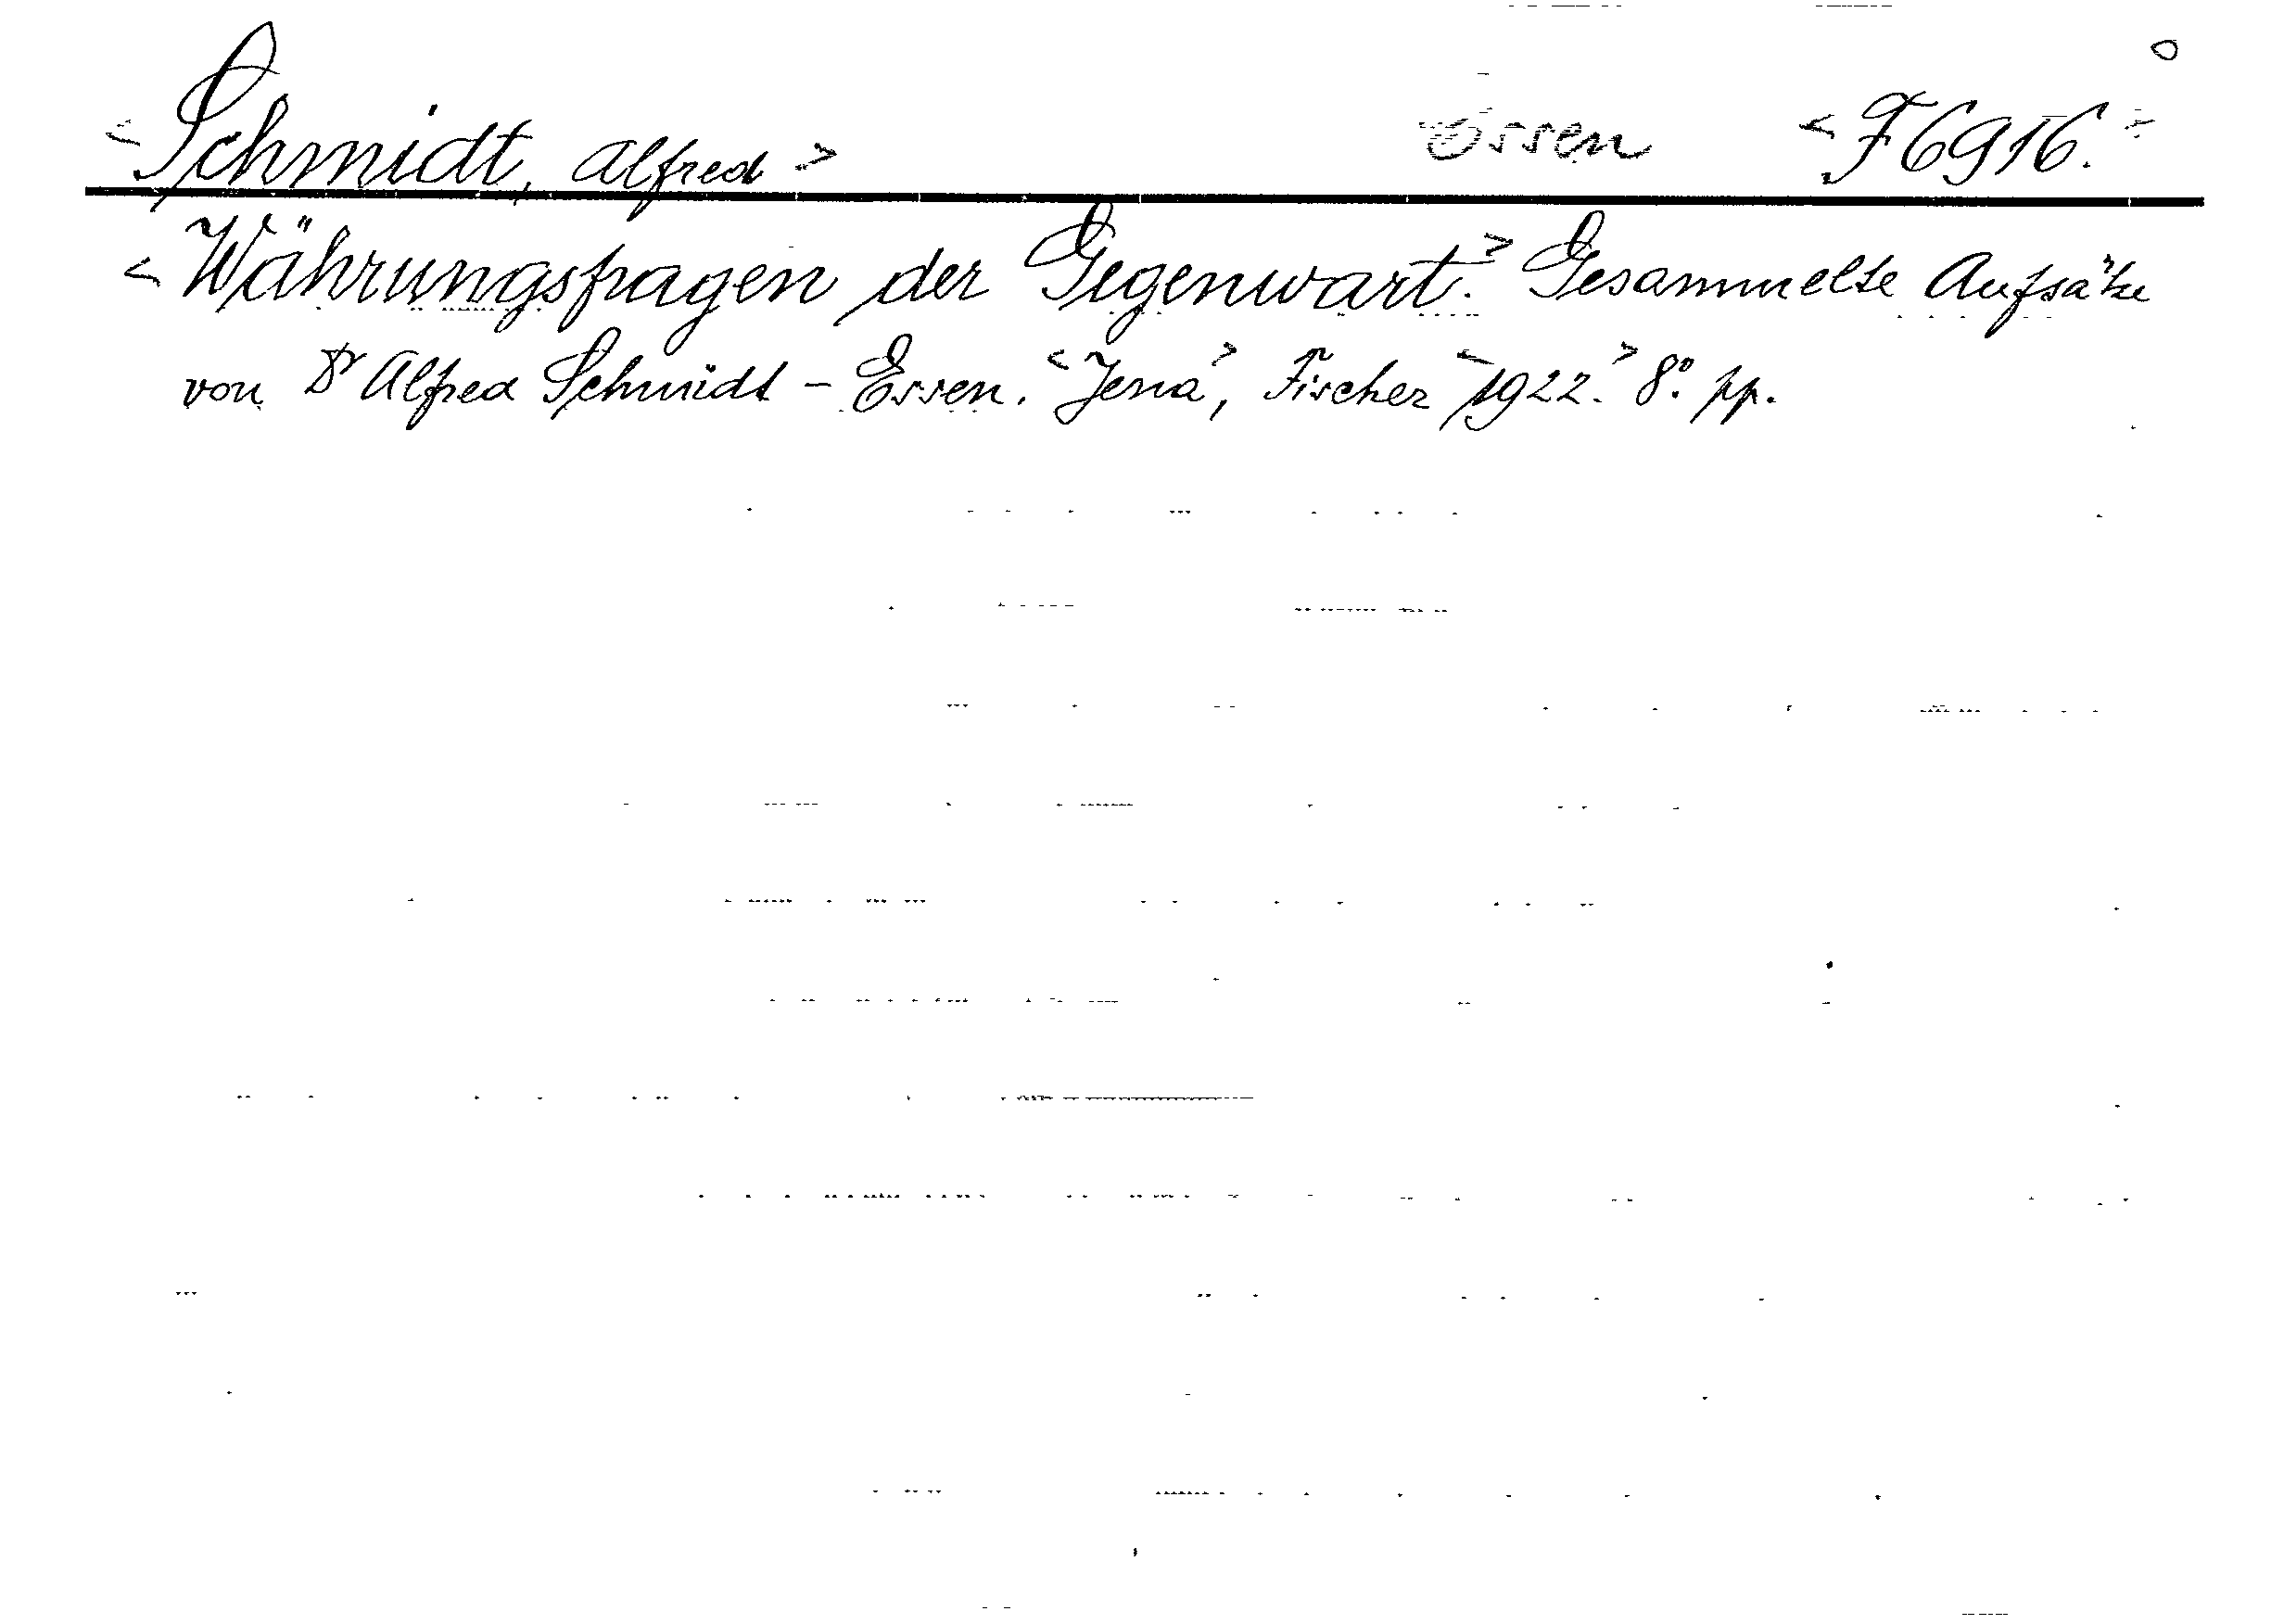 <Schmidt, Alfred> Essen <F6916.>
<Währungsfragen der Gegenwart.> Gesammelte Aufsätze
von Dr Alfred Schmidt-Essen. <Jena>, Fischer <1922.> 8° pp.